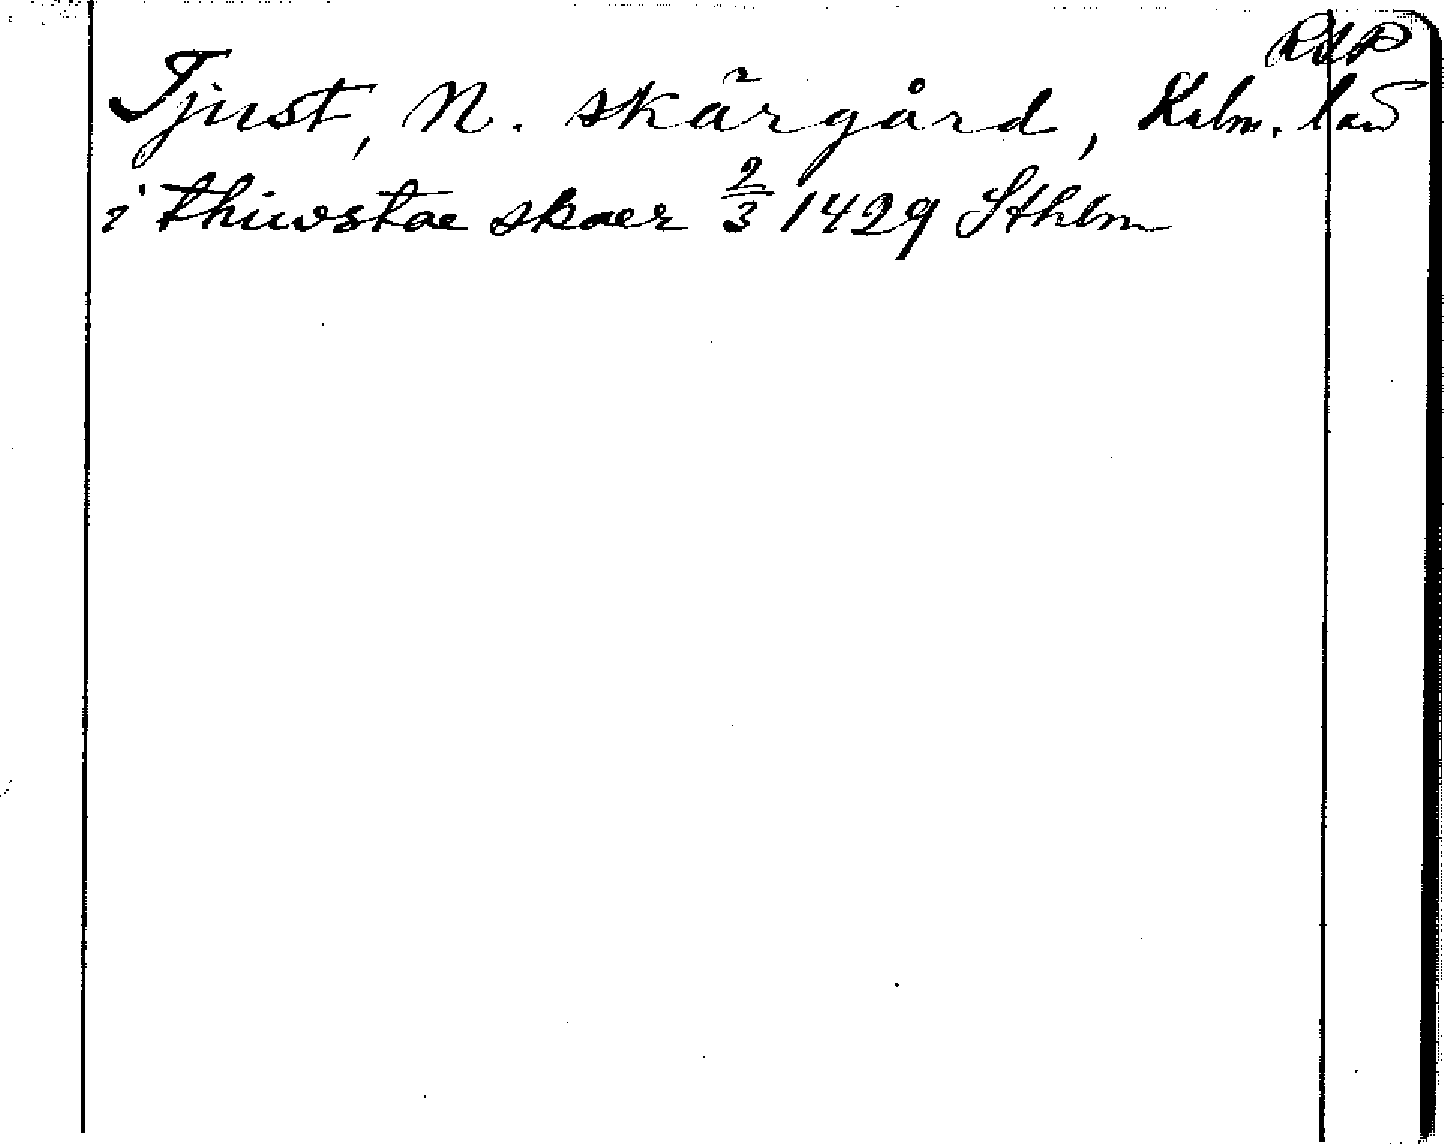 RAP
Tjust, N. skärgård, Kalm. län
i thiwstae skaer 2/3 1429 Sthlm